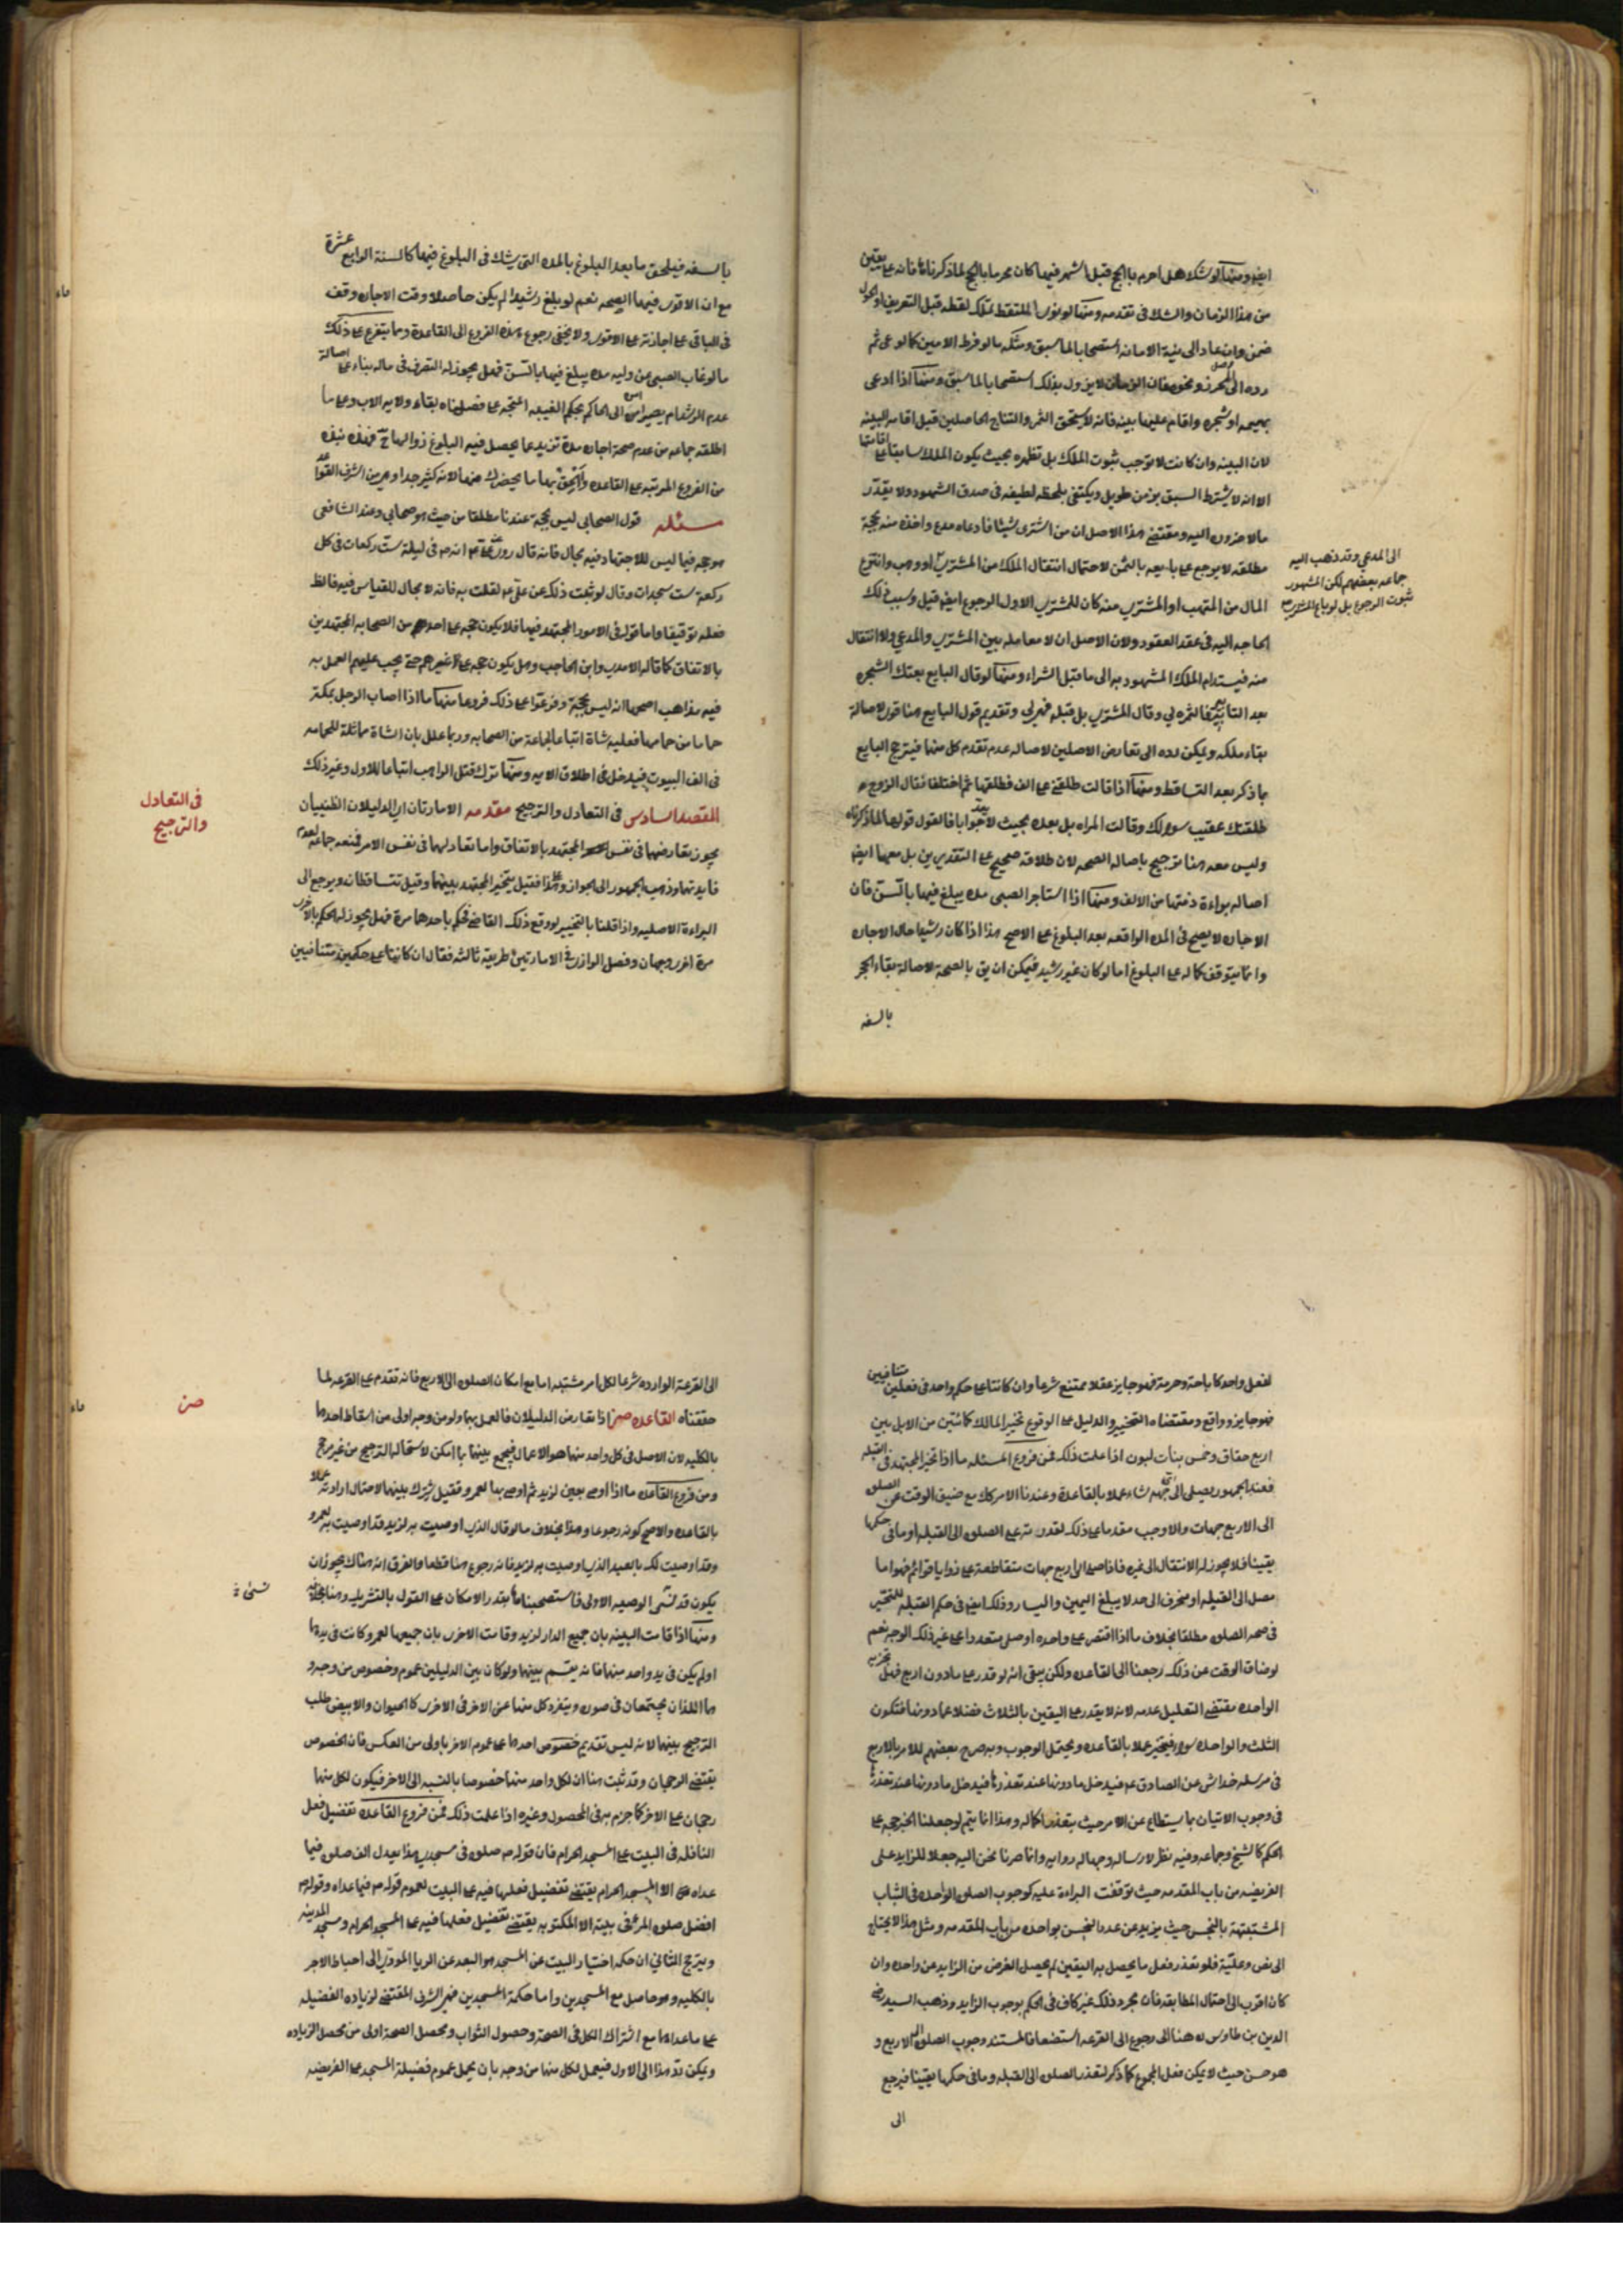 ايضا ومنها لو شك هل احرم بالحج قبل اشهر فيها كان محرما بالحج لما ذكرناه فانه على يقين
من هذا الزمان والشك فى تقدمه ومنها لو نوى الملتقط تملك لقطه قبل التعريف او الحول
ضمن وان عاد الى نية الامانه استصحابا لما سبق ومثله ما لو فرط الامين كالوعى ثم
رده الى الحرز ونحوه فان الضمان لا يزول بذلك استصحابا لما سبق ومنها اذا ادعى
بهيمه او شجره واقام عليها بينه فانه لا يستحق الثمر والنتاج الحاصلين قبل اقامه البينه
لان البينه وان كانت لا توجب ثبوت الملك بل تظهره بحيث يكون الملك سابقا على اقامتها
الا انه لا يشترط السبق بزمن طويل ويكتفى بلحظه لطيفه فى صدق الشهود ولا يقدر
مالا ضروره اليه ومقتضى هذا الاصل ان من اشترى شيئا فادعاه مدع واخذه منه بحجة
مطلقه لا يرجع على بايعه بالثمن لاحتمال انتقال الملك من المشترى او وهب وانتزع
المال من المتهب او المشترى منه كان للمشترى الاول الرجوع ايضا قيل وسبب ذلك
الحاجه اليه فى عقد العقود ولان الاصل ان لا معامله بين المشترى والمدعي ولا انتقال
منه فيستدام الملك المشهود به الى ما قبل الشراء ومنها لو قال البايع بعتك الشجره
بعد التابير فالثمره لي وقال المشترى بل قبله فهى لي وتقديم قول البايع هنا قوى لاصالة
بقاء ملكه ويمكن رده الى تعارض الاصلين لاصاله عدم تقدم كل منهما فيترجح البايع
بما ذكر بعد التساقط ومنها اذا قالت طلقنى على الف فطلقها ثم اختلفا فقال الزوج
طلقتك عقيب سوالك وقالت المراه بل بعده بحيث لا يعد جوابا فالقول قولها لما ذكرناه
وليس معه هنا ترجيح باصاله الصحه لان طلاقه صحيح على التقديرين بل معها ايضا
اصاله براءة ذمتها من الالف ومنها اذا استاجر الصبى مده يبلغ فيها بالسن فان
الاجاره لا يصح فى المده الواقعه بعد البلوغ على الاصح هذا اذا كان رشيدا حال الاجاره
وانما يتوقف كماله على البلوغ اما لو كان غير رشيد فيمكن ان يق بالصحة لاصالة بقاء الحجر
بالسفه
الى المدعي وقد ذهب اليه
جماعه بعضهم لكن المشهور
ثبوت الرجوع بل لو باع المشترى
بالسفه فيلحق ما بعد البلوغ بالمده التى يشك فى البلوغ فيها كالسنة الرابع عشرة
مع ان الاقوى فيها الصحه نعم لو بلغ رشيدا لم يكن حاصلا وقت الاجاره وقف
فى الباقى على اجازته على الاقوى ولا يخفى رجوع هذه الفروع الى القاعدة ومما يتفرع على ذلك
ما لو غاب الصبى عن وليه مده يبلغ فيها بالسن فهل يجوز له التصرف فى ماله بناء على اصالة
عدم الرشد ام يصير امره الى الحاكم بحكم الغيبه اتجه على فصلناه بقاء ولايه الاب وعلى ما
اطلقه جماعه من عدم صحة اجاره مدة تزيد عما يحصل فيه البلوغ زوالها ح فهذه نبذه
من الفروع المرتبه على القاعده والحق بها ما يحضرك منها لانه كثير جدا وهى من اشرف القواعد
مسئله قول الصحابى ليس بحجة عندنا مطلقا من حيث هو صحابى وعند الشافعى
هو حجه فيما ليس للاجتهاد فيه مجال فانه قال روى عن على ع انه ص فى ليلة ست ركعات فى كل
ركعة ست سجدات وقال لو ثبت ذلك عن على ع لقلت به فانه لا مجال للقياس فيه فالظ
فعله توقيفا واما قوله فى الامور المجتهد فيها فلا يكون حجه على احد من الصحابه المجتهدين
بالاتفاق كما قاله الامدى وابن الحاجب وهل يكون حجه على غيرهم حتى يجب عليهم العمل به
فيه مذاهب اصحها انه ليس بحجة وفرعوا على ذلك فروعا منها ما اذا اصاب الرجل بمكة
حماما من حمامها فعليه شاة اتباعا لجماعة من الصحابه وربما علل بان الشاة مماثلة للحمامه
فى الف البيوت فيدخل فى اطلاق الايه ومنها ترك قتل الراهب اتباعا للاول وغير ذلك
المقصد السادس فى التعادل والترجيح مقدمه الامارتان اى الدليلان الظنيان
يجوز تعارضهما فى نفس المجتهد بالاتفاق واما تعادلهما فى نفس الامر فمنعه جماعه لعدم
فايدتها وذهب الجمهور الى الجواز وعلى هذا فقيل يتخير المجتهد بينهما وقيل تتساقطان ويرجع الى
البراءة الاصليه واذا قلنا بالتخيير لو وقع ذلك القاضى فحكم باحدهما مرة فهل يجوز له الحكم بالاخرى
مرة اخرى وجهان وفصل الرازى فى الامارتين طريقة ثالثه فقال ان كانتا على حكمين متنافيين
فى التعادل
والترجيح
لفعل واحد كاباحة وحرمة فهو جايز عقلا ممتنع شرعا وان كانتا على حكم واحد فى فعلين متنافيين
فهو جايز وواقع ومقتضاه التخيير والدليل على الوقوع تخير المالك كماتين من الابل بين
اربع حقاق وخمس بنات لبون اذا علمت ذلك فمن فروع المسئله ما اذا تحير المجتهد فى القبله
فعند الجمهور يصلى الى اى جهه شاء عملا بالقاعدة وعندنا الامر كك مع ضيق الوقت عن الصلوه
الى الاربع جهات والا وجب مقدما على ذلك لقدرته على الصلوه الى القبله او ما فى حكمها
يقينا فلا يجوز له الانتقال الى غيره فاذا صلى الى اربع جهات متقاطعة على زوايا قوائم فهو اما
مصل الى القبله او منحرف الى حد لا يبلغ اليمين واليسار وذلك ايضا فى حكم القبله للمتحير
فى صحه الصلوه مطلقا بخلاف ما اذا اقتصر على واحده او صلى متعددا على غير ذلك الوجه نعم
لو ضاق الوقت عن ذلك رجعنا الى القاعده ولكن يبقى انه لو قدر على ما دون اربع فهل يجزيه
الواحده مقتضى التعليل عدمه لانه لا يقدر على اليقين بالثلاث فضلا عما دونها فتكون
الثلث والواحده سواء فيتخير عملا بالقاعده ويحتمل الوجوب وبه صرح بعضهم للامر بالاربع
فى مرسله خداش عن الصادق ع فيدخل ما دونها عند تعذرها فيدخل ما دونها عند تعذرها
فى وجوب الاتيان بما يستطاع عن الامر حيث يتعذر اكماله وهذا انما يتم لو جعلنا الخبر حجه على
الحكم كالشيخ وجماعه وفيه نظر لارساله وجهاله راويه وانما صرنا نحن اليه جعلا للزايد على
الفريضه من باب المقدمه حيث توقفت البراءة عليه كوجوب الصلوه الواحده فى الثياب
المشتبهة بالنجس حيث يزيد عن عدد النجس بواحده من باب المقدمه ومثل هذا لا يحتاج
الى نص وعليه فلو تعذر فعل ما يحصل به اليقين لم يحصل الغرض من الزايد عن واحده وان
كان اقرب الى احتمال المطابقه فان مجرد ذلك غير كاف فى الحكم بوجوب الزايد وذهب السيد رضى
الدين بن طاوس ره هنا الى رجوع الى القرعه استضعافا لمستند وجوب الصلوه الى الاربع و
هو حسن حيث لا يمكن فعل المجموع كما ذكر لتعذر الصلوه الى القبله وما فى حكمها يقينا فيرجع
الى
الى القرعة الوارده شرعا لكل امر مشتبه اما مع امكان الصلوه الى الاربع فانه تقدم على القرعه لما
حققناه القاعده صز اذا تعارض الدليلان فالعمل بهما ولو من وجه اولى من اسقاط احدهما
بالكليه لان الاصل فى كل واحد منهما هو الاعمال فيجمع بينهما بما امكن لاستحاله الترجيح من غير مرجح
ومن فروع القاعده ما اذا اوصى بعين لزيد ثم اوصى بها لعمرو فقيل يشرك بينهما لاحتمال ارادته عملا
بالقاعده والاصح كونه رجوعا وهذا بخلاف ما لو قال الذى اوصيت به لزيد قد اوصيت به لعمرو
وقد اوصيت لك بالعبد الذى اوصيت به لزيد فانه رجوع هنا قطعا والفرق انه هناك يجوز ان
يكون قد نسى الوصيه الاولى فاستصحبناها بقدر الامكان على القول بالتشريك وهنا بخلافه
ومنها اذا قامت البينه بان جميع الدار لزيد وقامت الاخرى بان جميعها لعمرو وكانت فى يدهما
او لم يكن فى يد واحد منهما فانه يقسم بينهما ولو كان بين الدليلين عموم وخصوص من وجه و
هما اللذان يجتمعان فى صوره وينفرد كل منهما عن الاخر فى الاخرى كالحيوان والابيض طلب
الترجيح بينهما لانه ليس تقديم خصوص احدهما على عموم الاخر باولى من العكس فان الخصوص
يقتضى الرجحان وقد ثبت هنا ان لكل واحد منهما خصوصا بالنسبه الى الاخر فيكون لكل منهما
رجحان على الاخر كما جزم به فى المحصول وغيره اذا علمت ذلك فمن فروع القاعده تفضيل فعل
النافله فى البيت على المسجد الحرام فان قوله ص صلوه فى مسجدى هذا يعدل الف صلوه فيما
عداه الا المسجد الحرام يقتضى تفضيل فعلها فيه على البيت لعموم قوله ص فيما عداه وقوله ص
افضل صلوه المرء فى بيته الا المكتوبه يقتضى تفضيل فعلها فيه على المسجد الحرام ومسجد المدينه
ويترجح الثانى ان حكمه اختيار البيت عن المسجد هو البعد عن الريا المودى الى احباط الاجر
بالكليه وهو حاصل مع المسجدين واما حكمة المسجدين فهى الشرف المقتضى لزياده الفضيله
على ما عداهما مع اشتراك الكل فى الصحة وحصول الثواب ومحصل الصحة اولى من محصل الزياده
ويمكن رد هذا الى الاول فيعمل لكل منهما من وجه بان يحمل عموم فضيلة المسجد على الفريضه
صز